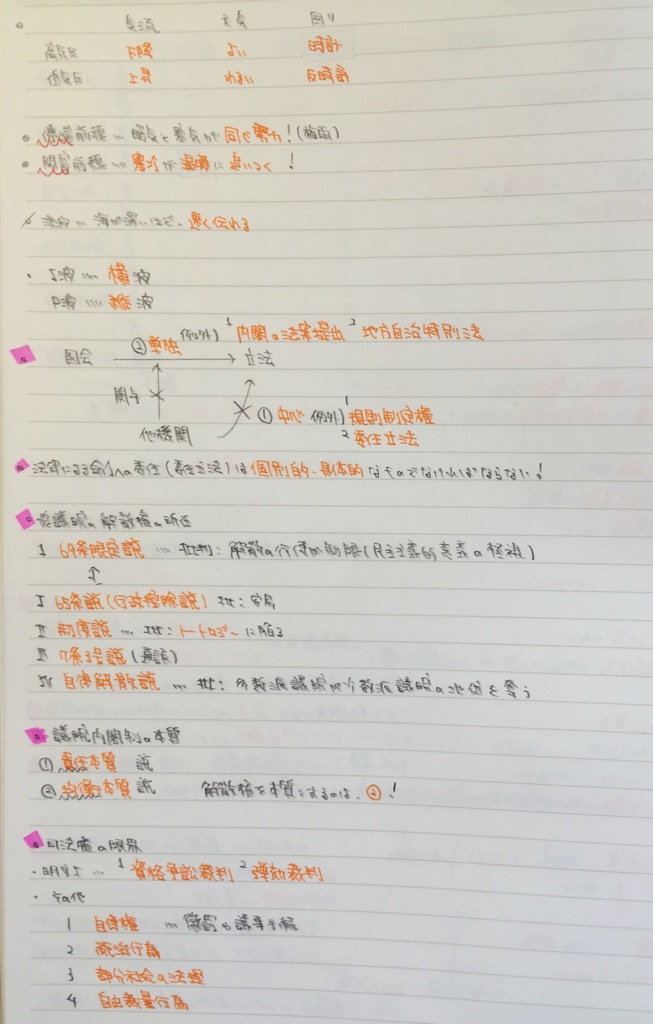 気流 天気 回り
高気圧 下降 よい 時計
低気圧 上昇 わるい 反時計
停滞前線 … 暖気と寒気が同じ勢力！(梅雨)
閉塞前線 … 寒冷が温暖に追いつく！
津波 … 海が深いほど、速く伝わる
S波 … 横波
P波 … 縦波
②単独 例外) 1 内閣の法案提出 2 地方自治特別法
国会 → 立法
関与
①中心 例外) 1 規則制定権
他機関 2 委任立法
法律による命令への委任(委任立法)は個別的・具体的なものでなければならない！
衆議院の解散権の所在
I 69条限定説 … 批判：解散の行使が制限(民主主義的意義の軽視)
I 65条説(行政控除説) 批：安易
II 制度説 … 批：トートロジーに陥る
III 7条3号説(通説)
IV 自律解散説 … 批：多数派議員が少数派議員の地位を奪う
議院内閣制の本質
①責任本質 説
②均衡本質 説 解散権を本質とするのは、②！
司法権の限界
・明文上 … 1 資格争訟裁判 2 弾劾裁判
・その他
1 自律権 … 懲罰や議事手続
2 統治行為
3 部分社会の法理
4 自由裁量行為